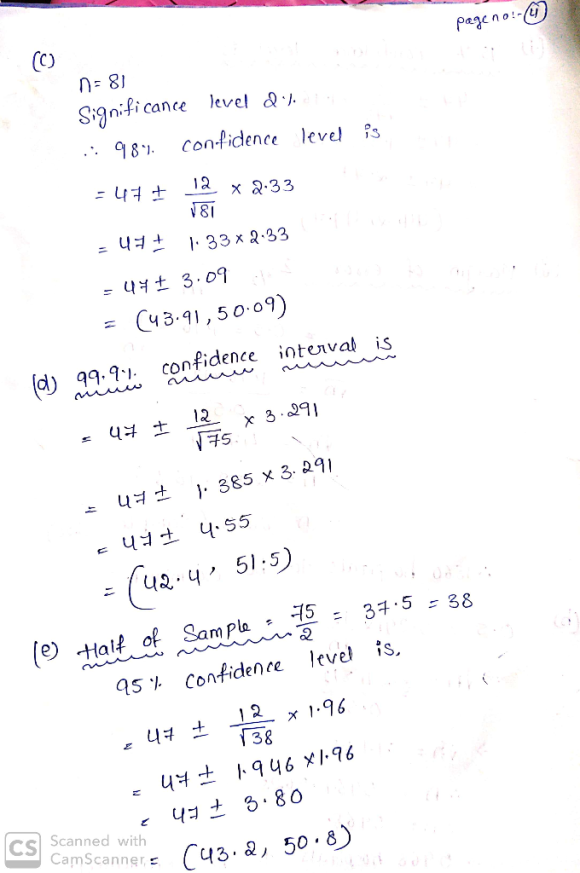 page no:- (4)
(C)
n = 81
Significance level 2%
∴ 98% confidence level is
= 47 ± 12/√81 × 2.33
= 47 ± 1.33 × 2.33
= 47 ± 3.09
= (43.91, 50.09)
(d) 99.9% confidence interval is
= 47 ± 12/√75 × 3.291
= 47 ± 1.385 × 3.291
= 47 ± 4.55
= (42.4, 51.5)
(e) Half of Sample = 75/2 = 37.5 = 38
95% confidence level is,
= 47 ± 12/√38 × 1.96
= 47 ± 1.946 × 1.96
= 47 ± 3.80
= (43.2, 50.8)
CS Scanned with
CamScanner